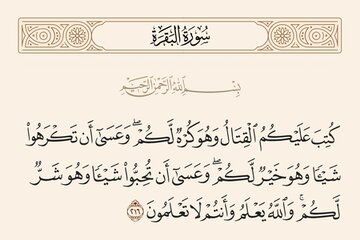 سُورَةُ البَقَرَةِ
بِسْمِ ٱللَّهِ ٱلرَّحْمَٰنِ ٱلرَّحِيمِ
كُتِبَ عَلَيْكُمُ ٱلْقِتَالُ وَهُوَ كُرْهٌ لَّكُمْ ۖ وَعَسَىٰٓ أَن تَكْرَهُوا۟
شَيْـًٔا وَهُوَ خَيْرٌ لَّكُمْ ۖ وَعَسَىٰٓ أَن تُحِبُّوا۟ شَيْـًٔا وَهُوَ شَرٌّ
لَّكُمْ ۗ وَٱللَّهُ يَعْلَمُ وَأَنتُمْ لَا تَعْلَمُونَ ٢١٦